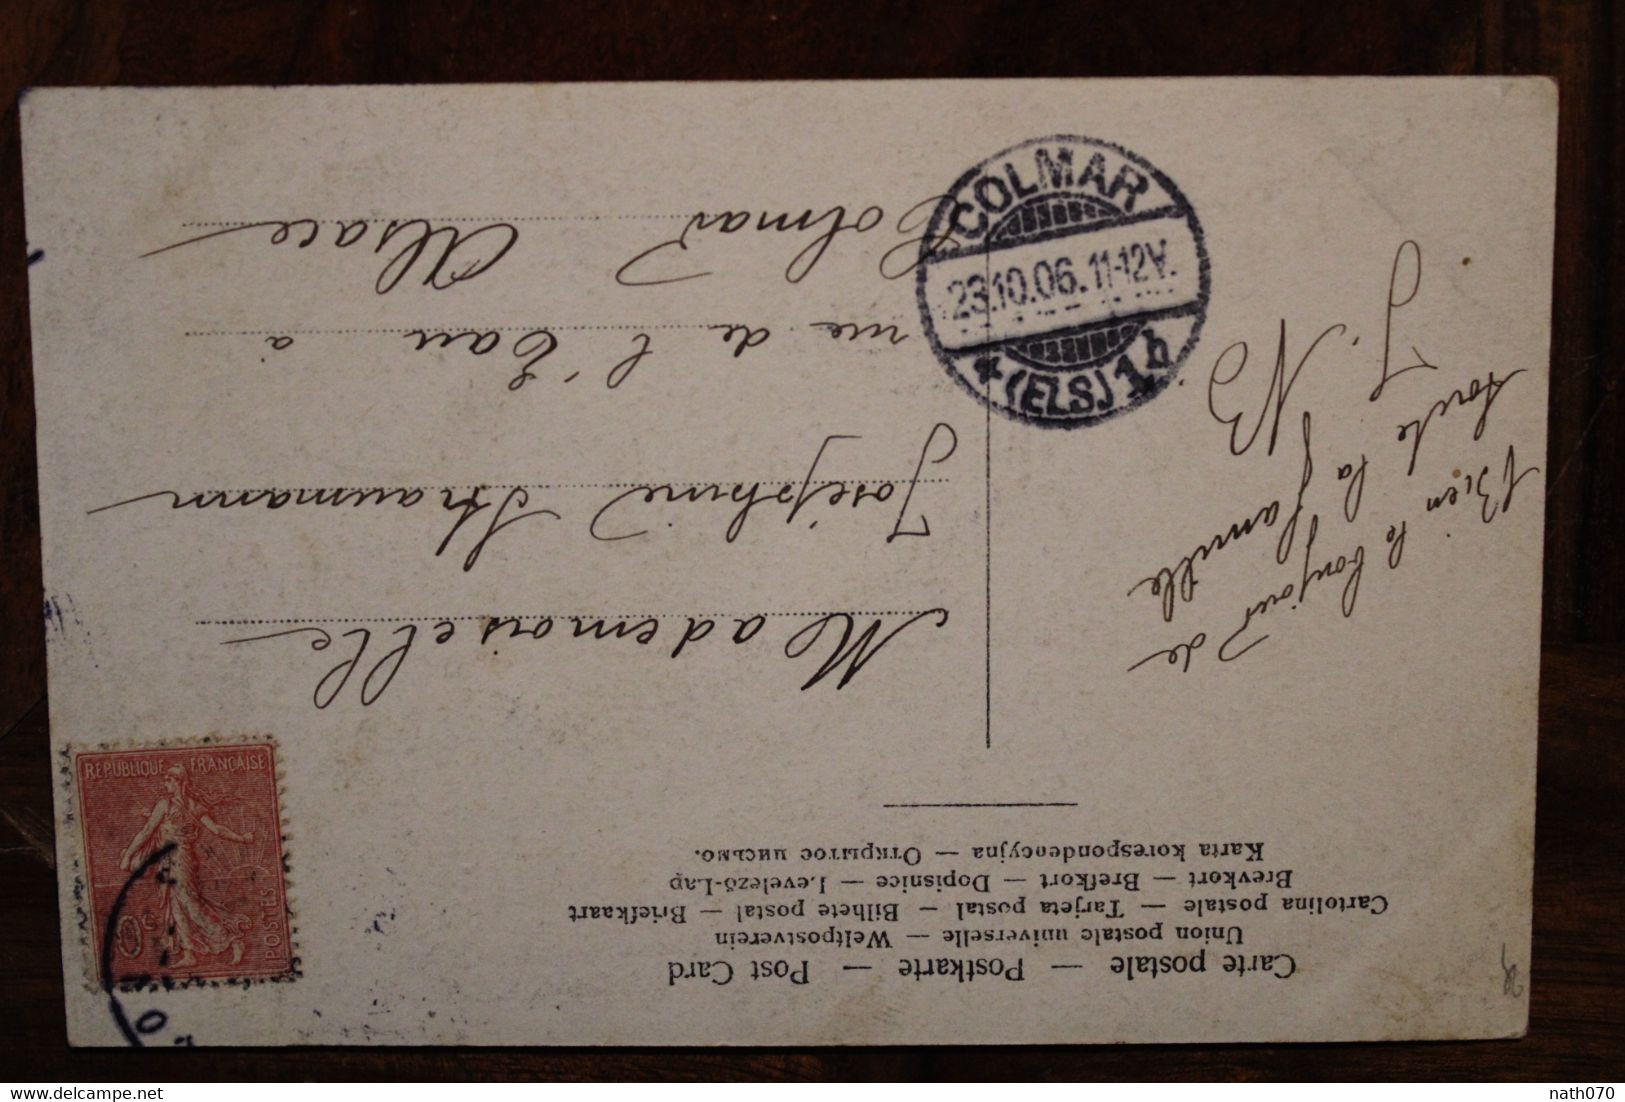 Carte postale — Postkarte — Post Card
Union postale universelle — Weltpostverein
Cartolina postale — Tarjeta postal — Bilhete postal — Briefkaart
Brevkort — Brefkort — Dopisnice — Levelező-Lap
Karta korespondencyjna — Открытое письмо.
Bien le bonjour de
toute la famille
J. NB
REPUBLIQUE FRANÇAISE
POSTES
10 c
Mademoiselle
Joséphine Straumann
rue de l'Eau à
Colmar Alsace
COLMAR
23.10.06.11-12V.
* (ELS) 1 b
delcampe.net
nath070